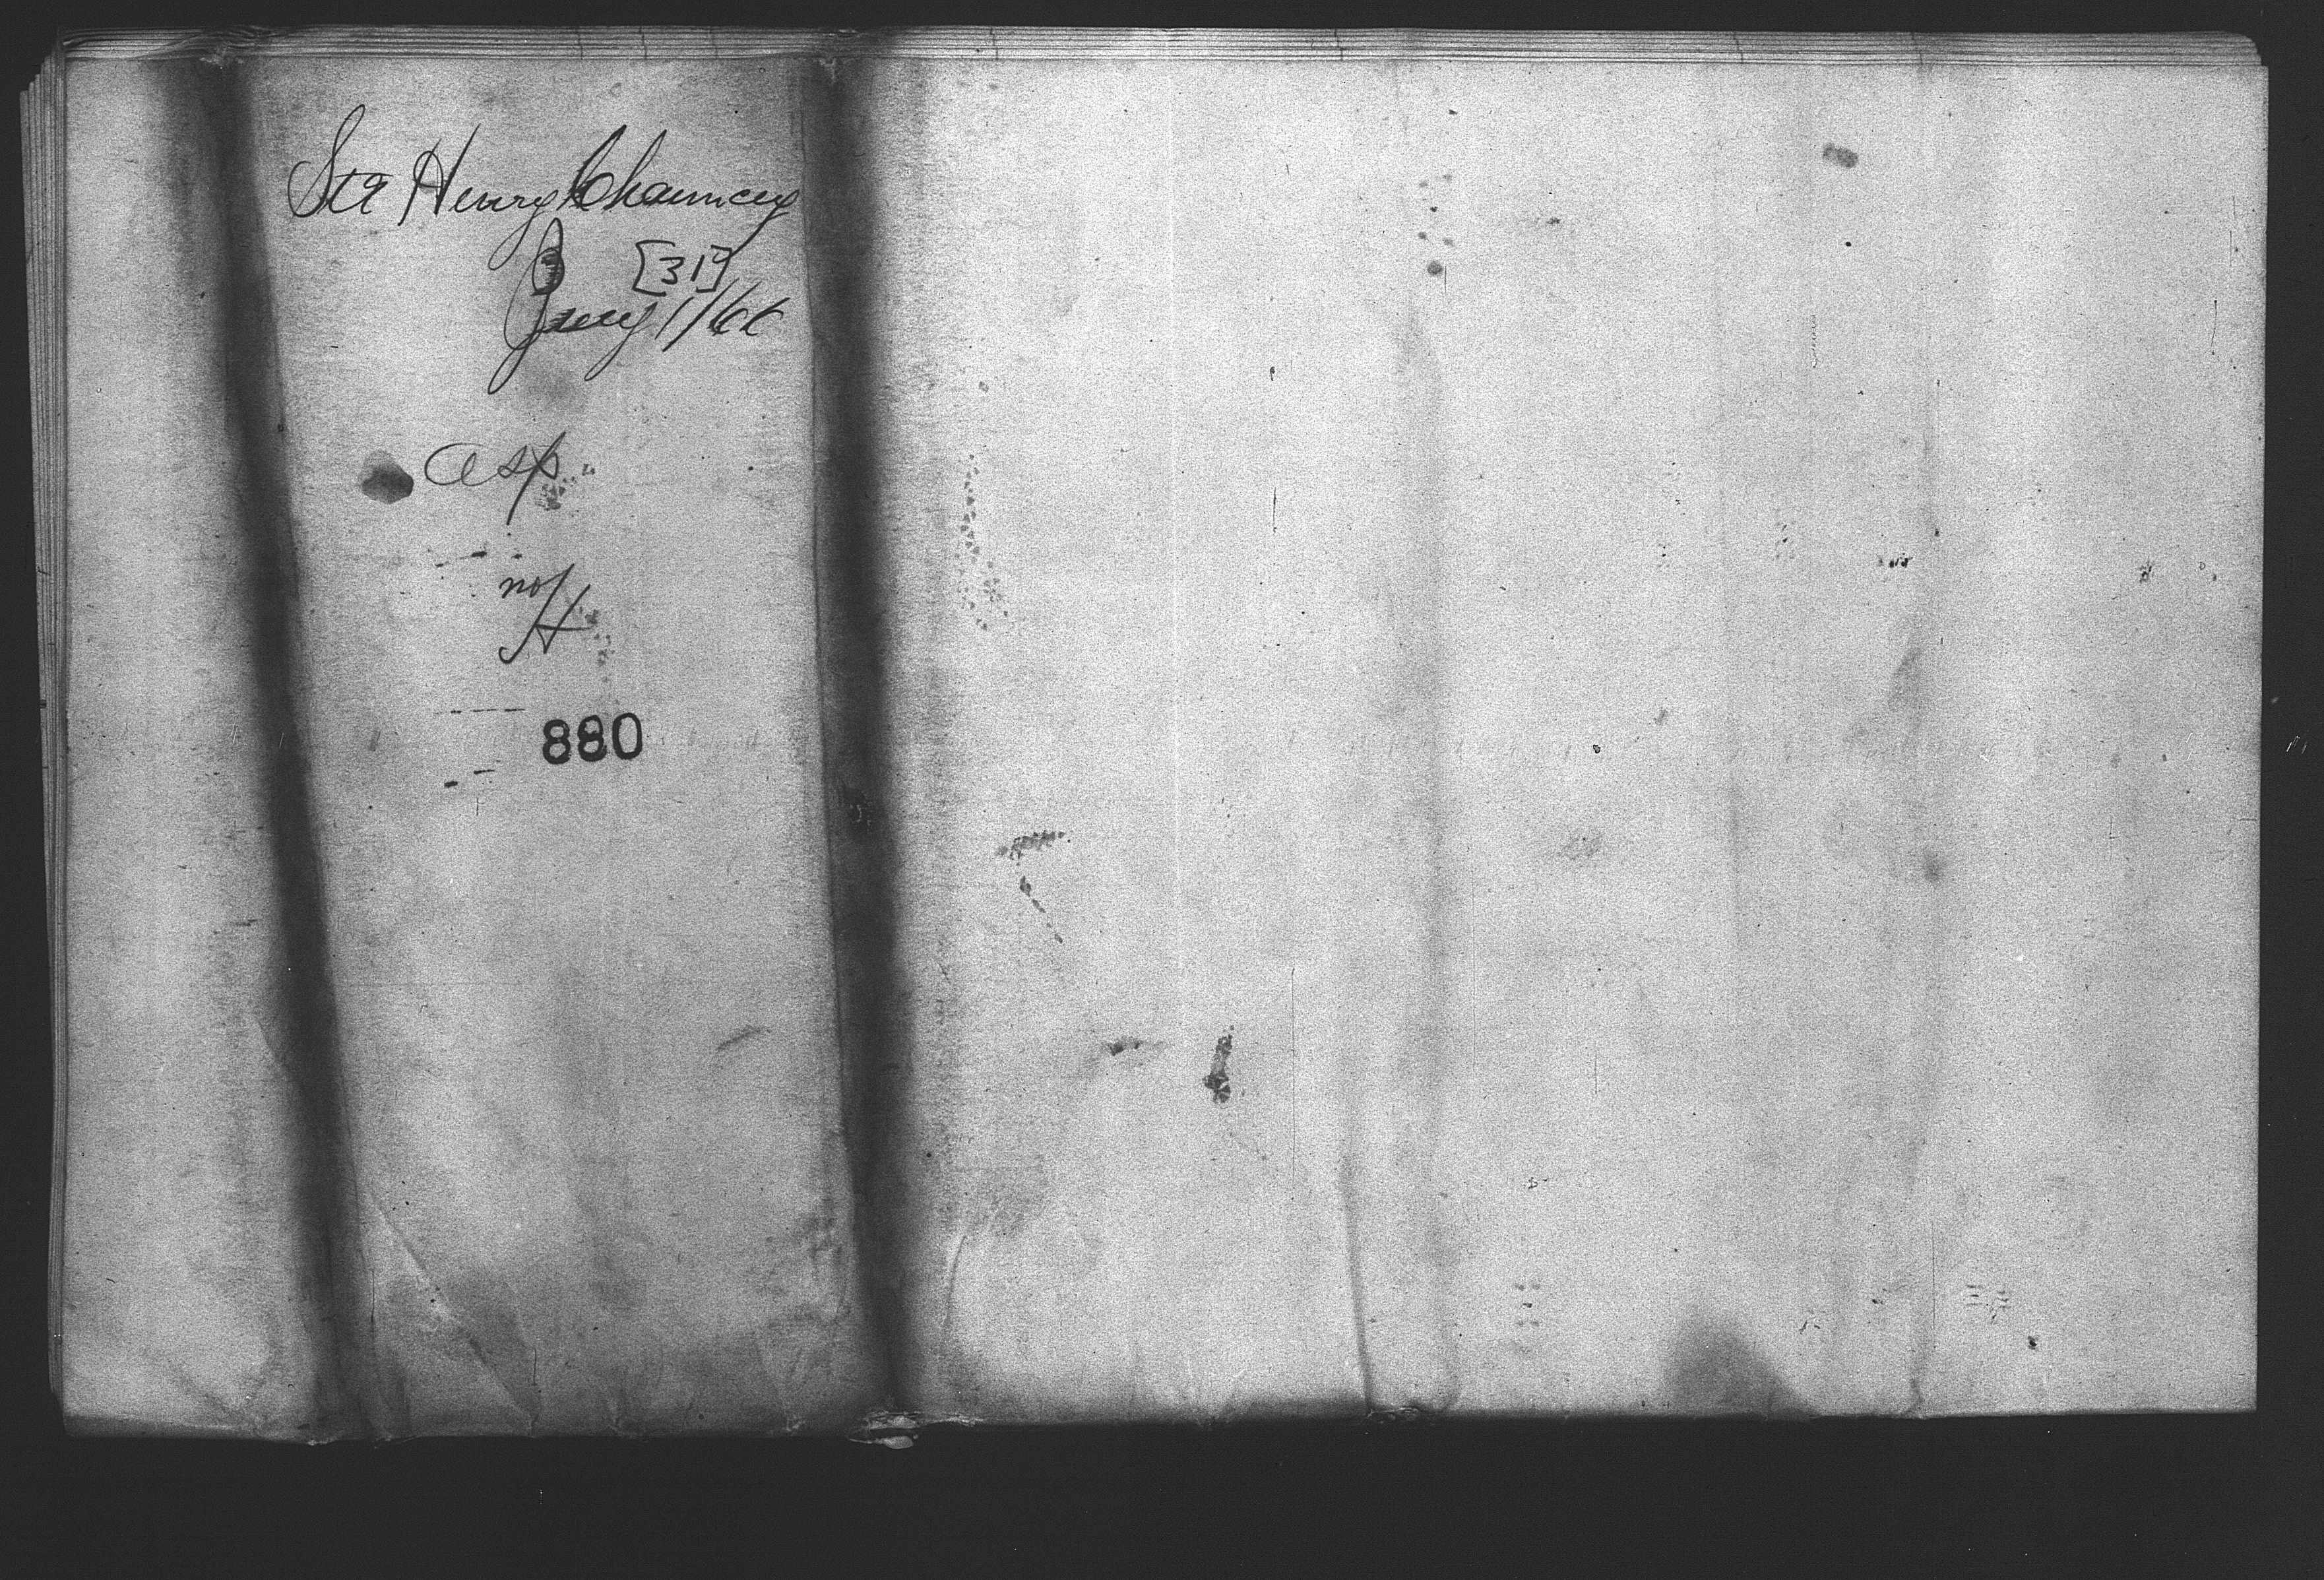 Str Henry Chauncey
[31]
Jany 1/66
asp
not
880